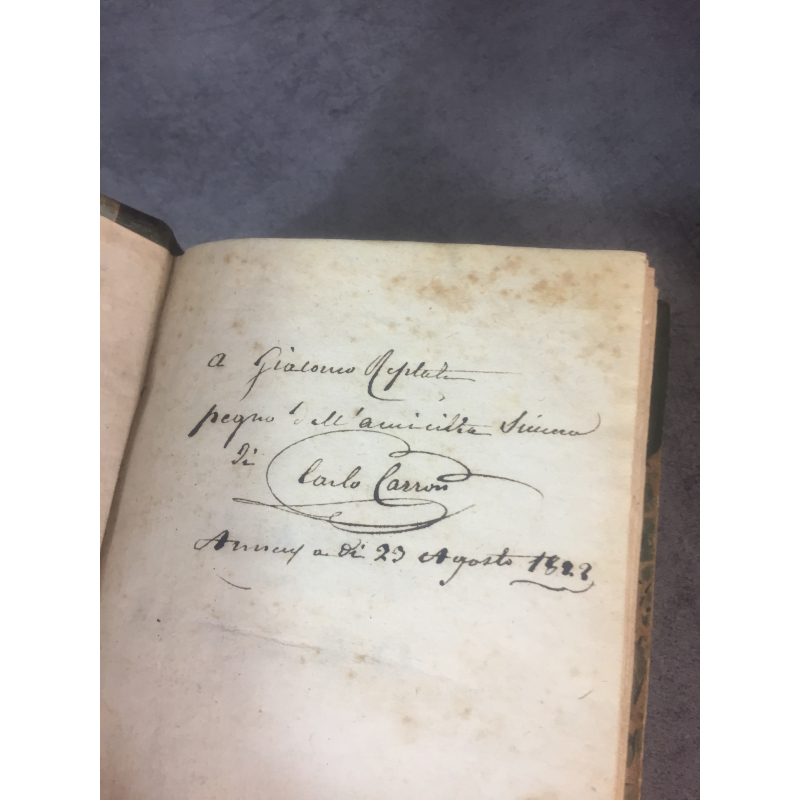 a Giacomo Replat
pegno dell'amicizia sincera
di
Carlo Carron
Annecy a di 23 Agosto